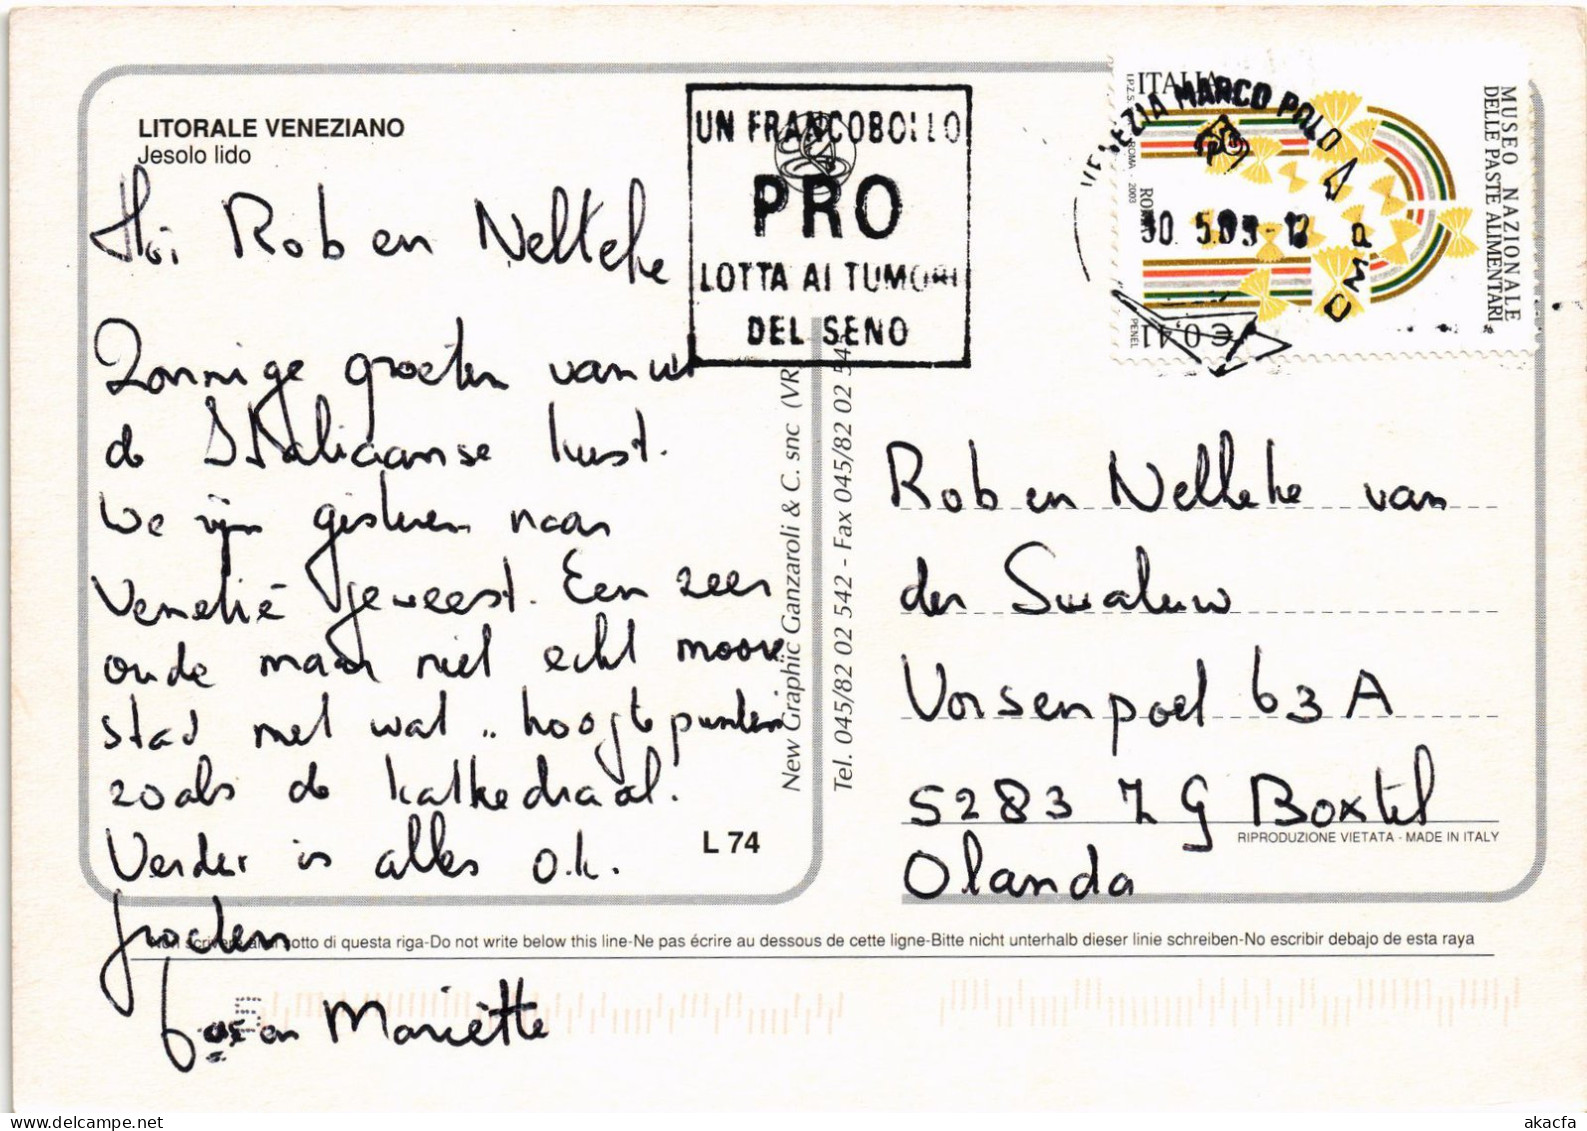 LITORALE VENEZIANO
Jesolo lido
Hoi Rob en Nelleke
Zonnige groeten vanuit
de Italiaanse kust.
We zijn gisteren naar
Venetië geweest. Een zeer
oude maar niet echt mooie
stad met wat .. hoogtepunten
zoals de kathedraal.
Verder is alles o.k.
groeten
en Mariëtte
L 74
New Graphic Ganzaroli & C. snc (VR)
Tel. 045/82 02 542 - Fax 045/82 02 54
UN FRANCOBOLLO
PRO
LOTTA AI TUMORI
DEL SENO
ITALIA
VENEZIA MARCO POLO
CMP
€0,41
I.P.Z.S. ROMA 2003
PENEL
MUSEO NAZIONALE
DELLE PASTE ALIMENTARI
Rob en Nelleke van
der Swaluw
Vorsenpoel 63A
5283 ZG Boxtel
RIPRODUZIONE VIETATA - MADE IN ITALY
Olanda
Non scrivere al di sotto di questa riga-Do not write below this line-Ne pas écrire au dessous de cette ligne-Bitte nicht unterhalb dieser linie schreiben-No escribir debajo de esta raya
www.akacfa.delcampe.net
akacfa